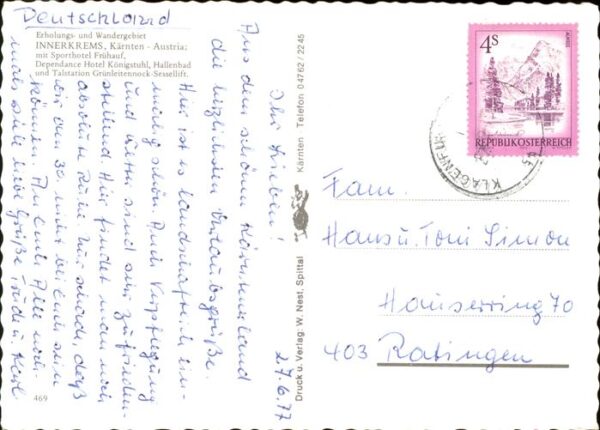 Deutschland
Erholungs- und Wandergebiet
INNERKREMS, Kärnten - Austria;
mit Sporthotel Frühauf,
Dependance Hotel Königstuhl, Hallenbad
und Talstation Grünleitennock-Sessellift.
27.6.77
Ihr Lieben!
Aus dem schönen Kärntnerland
die herzlichsten Urlaubsgrüße.
Hier ist es landschaftlich ein-
malig schön. Auch Verpflegung
und Wetter sind sehr zufrieden-
stellend. Hier findet man noch
absolute Ruhe. Nur schade, daß
wir den 30. nicht bei Euch sein
können. An Euch Alle noch
mals viele liebe Grüße
469
Druck u. Verlag: W. Nest, Spittal Kärnten - Telefon 04762 / 22 45
4S
ALMSEE
REPUBLIK ÖSTERREICH
KLAGENFURT
Fam.
Hans u. Toni Simon
Hauserring 70
403 Ratingen